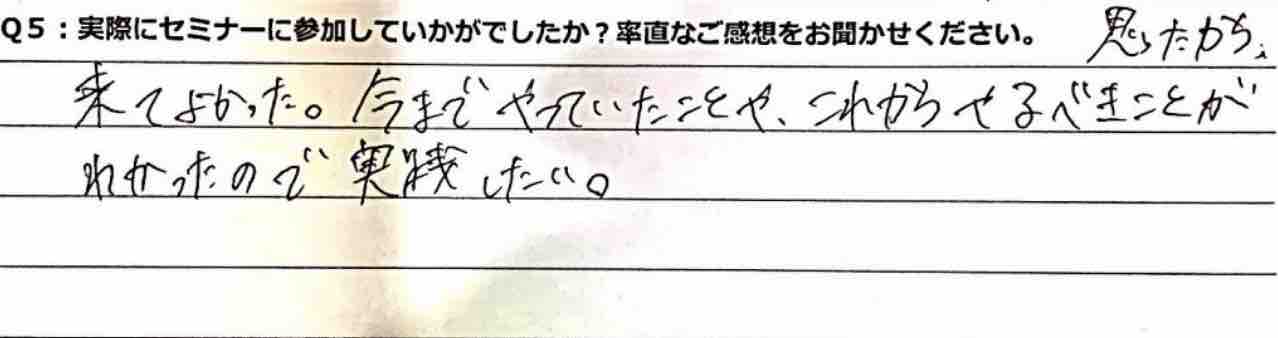 Q5：実際にセミナーに参加していかがでしたか？率直なご感想をお聞かせください。
思ったから。
来てよかった。今までやっていたことや、これからやるべきことが
わかったので実践したい。